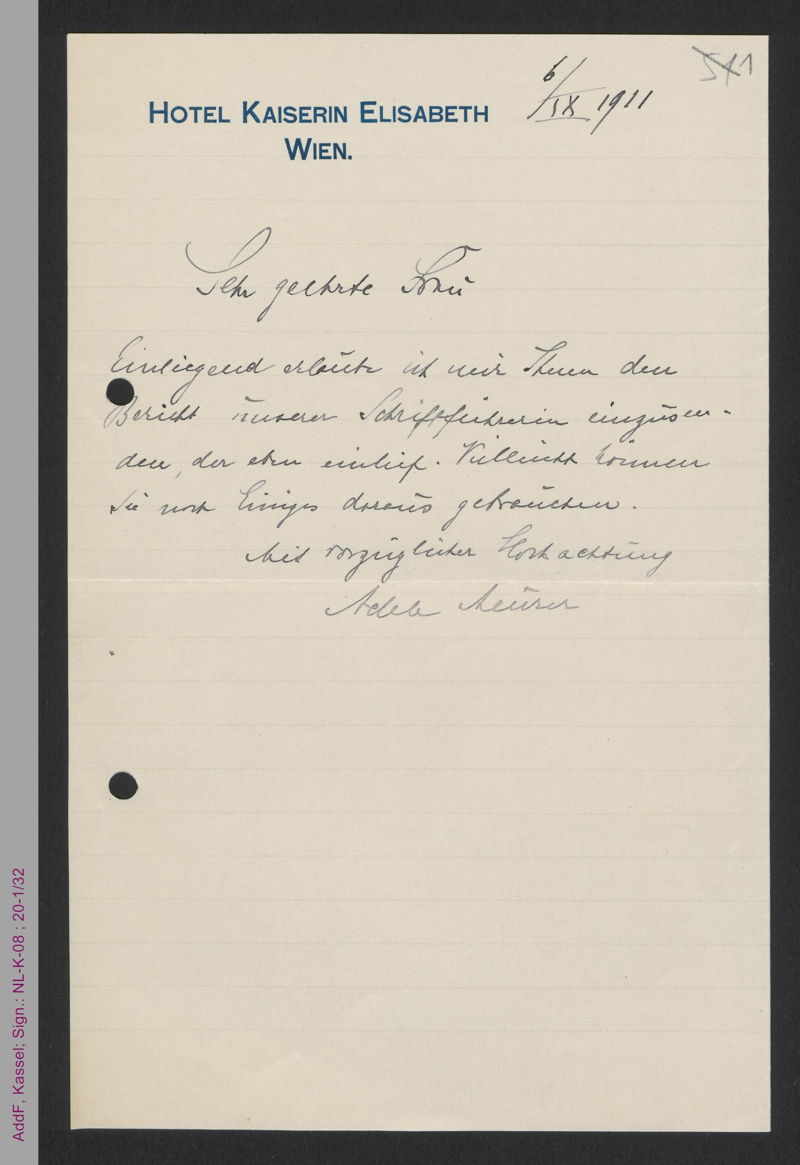 HOTEL KAISERIN ELISABETH
WIEN.
6/IX 1911
Sehr geehrte Frau
Einliegend erlaube ich mir Ihnen den
Bericht unserer Schriftführerin einzusen-
den, der eben einlief. Vielleicht können
Sie noch Einiges daraus gebrauchen.
Mit vorzüglicher Hochachtung
Adele Meurer
AddF, Kassel; Sign.: NL-K-08 ; 20-1/32